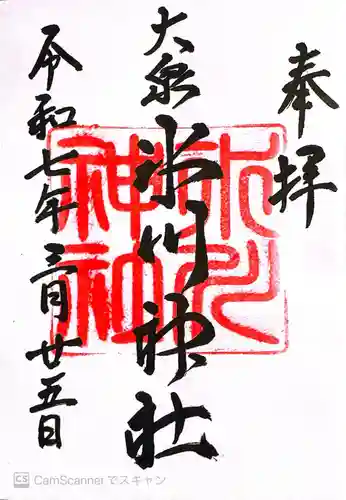 奉拝
大泉
氷川神社
令和七年三月廿五日
氷川
神社
CS CamScanner でスキャン